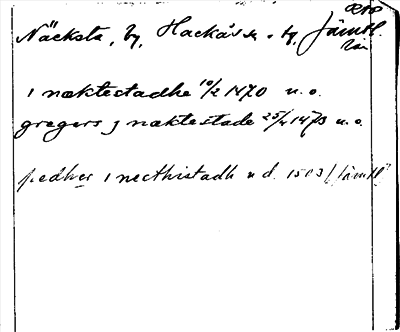 Näcksta, by, Hackås sn. o. tg, Jämtl.
i næktestadhe 10/2 1470 u. o.
gregers j næktestade 25/4 1473 u. o.
pedher i necthistadh u. d. 1503 (Jämtl)